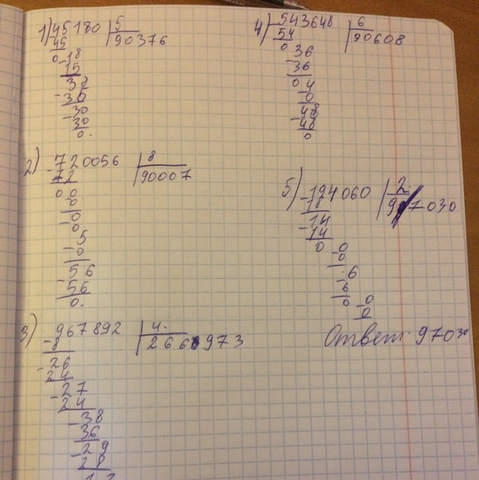 1) 45180 | 5
45 | 90376
0 18
15
38
- 30
- 30
30
0.
2) 720056 | 8
72 | 90007
0 0
0
- 0
5
- 0
- 56
56
0.
3) 967892 | 4
- 8
- 26
24
- 27
24
- 38
36
- 29
28
4) 543648 | 6
54 | 90608
0 36
- 36
0 4
0
- 48
- 48
0
5) - 194060 | 2
18 | 97030
- 14
- 14
0 0
- 0
6
- 6
0 0
- 0
Ответ: 97030